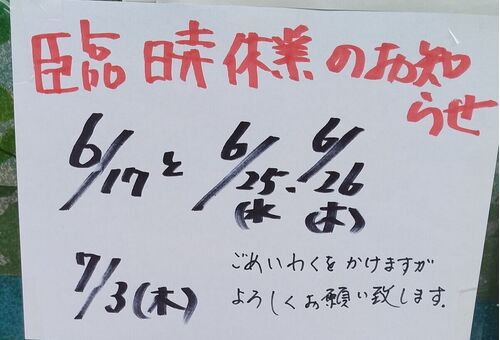 臨時休業のお知
らせ
6/17と 6/25、6/26
(水 (木)
7/3(木)
ごめいわくをかけますが
よろしくお願い致します.